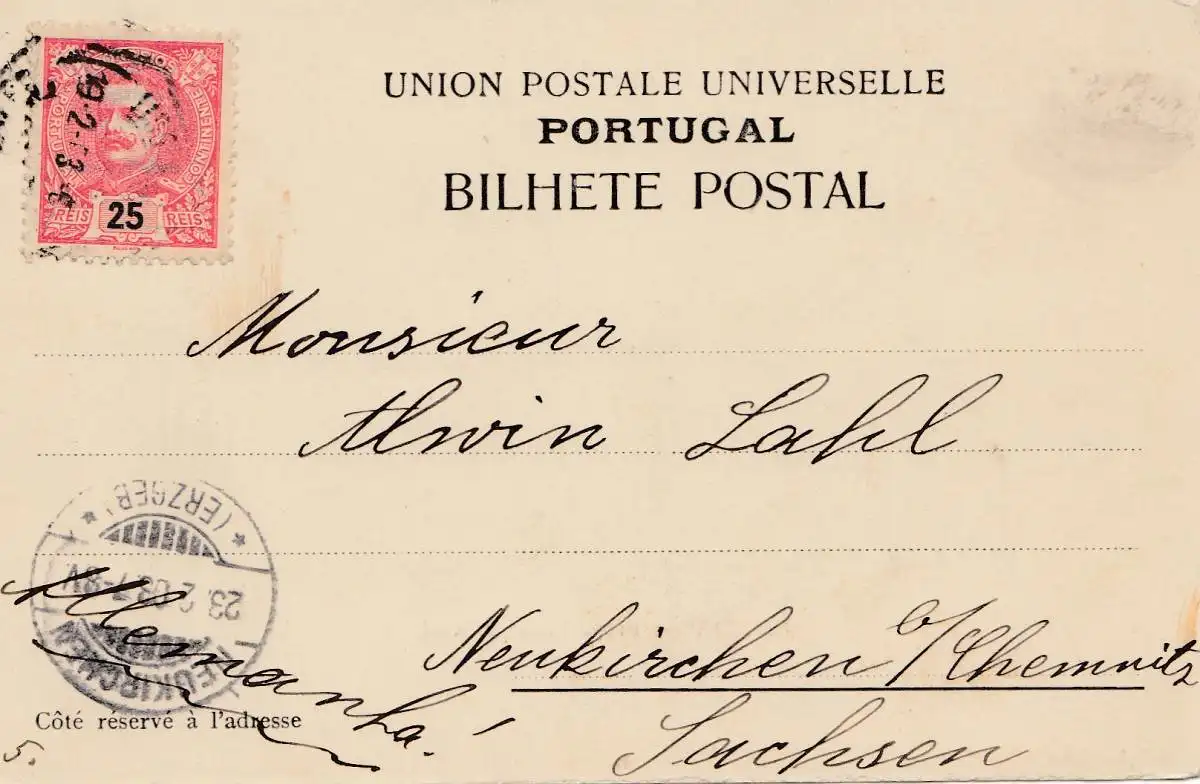 UNION POSTALE UNIVERSELLE
PORTUGAL
BILHETE POSTAL
PORTUGAL CONTINENTE
REIS 25 REIS
19·2
Monsieur
Alwin Lahl
(ERZGEB.)
23. 2 03. 7-8V.
NEUKIRCHEN
Neukirchen b/Chemnitz
Sachsen
Allemanha!
Côté réservé à l'adresse
5.